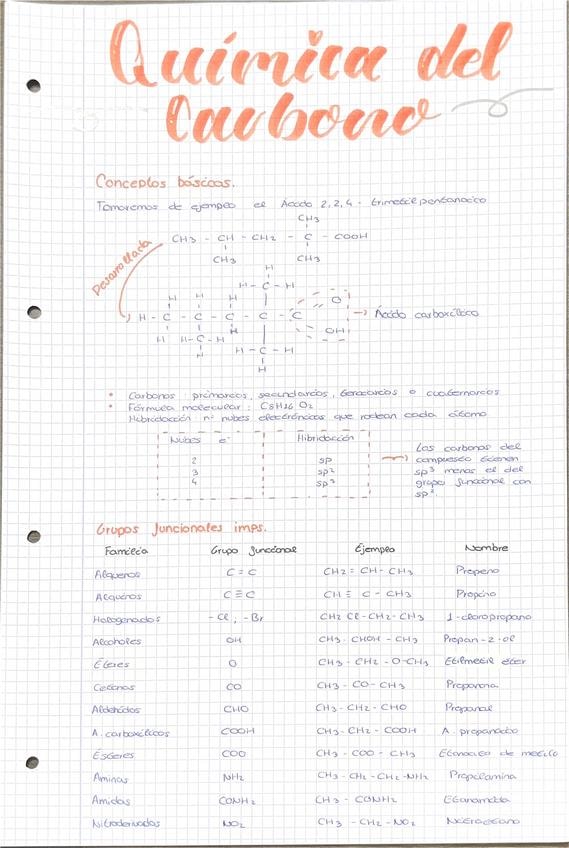 Química del
Carbono
Conceptos básicos.
Tomaremos de ejemplo el Ácido 2,2,4 - trimetilpentanoico
CH3
CH3 - CH - CH2 - C - COOH
CH3 CH3
Desarrollada
H
H - C - H
H H H O
H - C - C - C - C - C → Ácido carboxílico
H H - C - H H OH
H H - C - H
H
• Carbonos primarios, secundarios, terciarios o cuaternarios
• Fórmula molecular: C8H16O2
Hibridación nº nubes electrónicas que rodean cada átomo
Nubes e⁻ Hibridación
2 sp
3 sp²
4 sp³
Los carbonos del
compuesto tienen
sp³ menos el del
grupo funcional con
sp².
Grupos funcionales imps.
Familia Grupo funcional Ejemplo Nombre
Alquenos C = C CH2 = CH - CH3 Propeno
Alquinos C ≡ C CH ≡ C - CH3 Propino
Halogenados -Cl, -Br CH2 Cl - CH2 - CH3 1-cloropropano
Alcoholes OH CH3 - CHOH - CH3 Propan-2-ol
Éteres O CH3 - CH2 - O - CH3 Etilmetil éter
Cetonas CO CH3 - CO - CH3 Propanona
Aldehídos CHO CH3 - CH2 - CHO Propanal
A. carboxílicos COOH CH3 - CH2 - COOH A. propanoico
Ésteres COO CH3 - COO - CH3 Etanoato de metilo
Aminas NH2 CH3 - CH2 - CH2 - NH2 Propilamina
Amidas CONH2 CH3 - CONH2 Etanamida
Nitroderivados NO2 CH3 - CH2 - NO2 Nitroetano